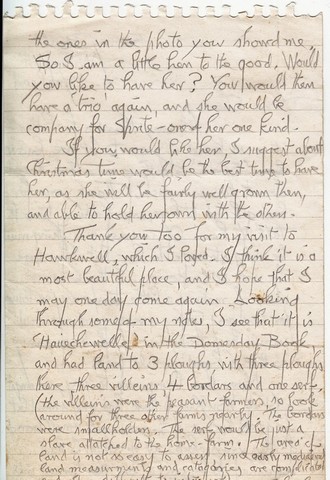 the ones in the photo you showed me.
So I am a little hen to the good. Would
you like to have her? You would then
have a trio again, and she would be
company for Sprite - one of her one kind.
If you would like her, I suggest about
Christmas time would be the best time to have
her, as she will be fairly well grown then,
and able to hold her own with the others.
Thank you too for my visit to
Hawkwell, which I loved. I think it is a
most beautiful place, and I hope that I
may one day come again. Looking
through some of my notes, I see that it is
Hauechewelle in the Domesday Book,
and had land to 3 ploughs with three ploughs
there, three villeins 4 bordars and one serf,
(the villeins were the peasant-farmers, so look
around for three other farms nearby. The bordars
were smallholders. The serf would be just a
slave attatched to the home-farm. The area of
land is not so easy to assess, since early mediaeval
land measurements and categories are complicated